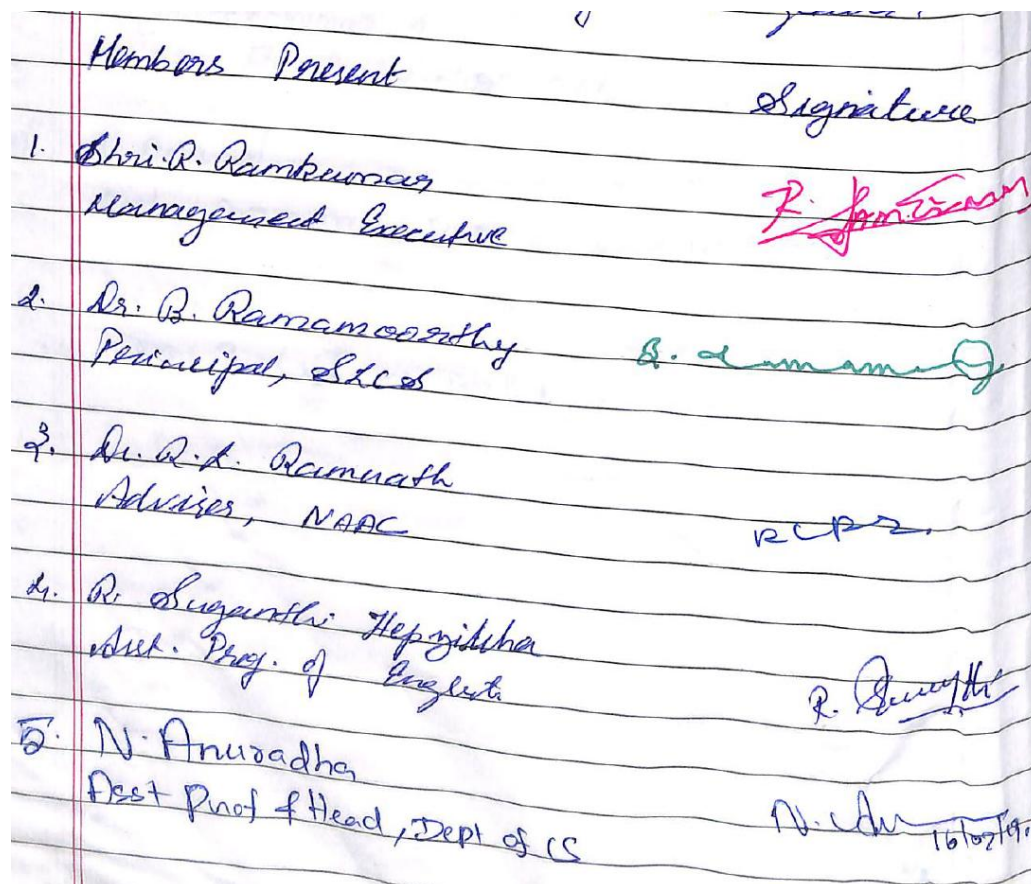 Members Present
Signature
1. Shri. R. Ramkumar
Management Executive
2. Dr. B. Ramamoorthy
Principal, SLCS
3. Dr. R. L. Ramnath
Adviser, NAAC
4. R. Suganthi Hepzibha
Asst. Prof. of English
R.
5. N. Anuradha
Asst Prof & Head, Dept of CS
N.